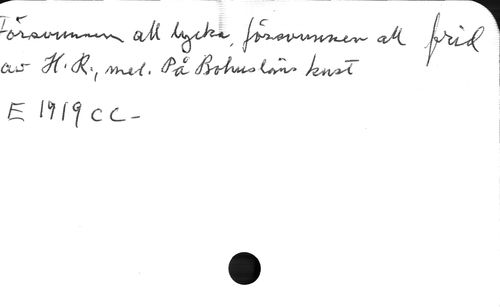 Försvunnen all lycka, försvunnen all frid
av H. R., mel. På Bohusläns kust
E 1919 CC-